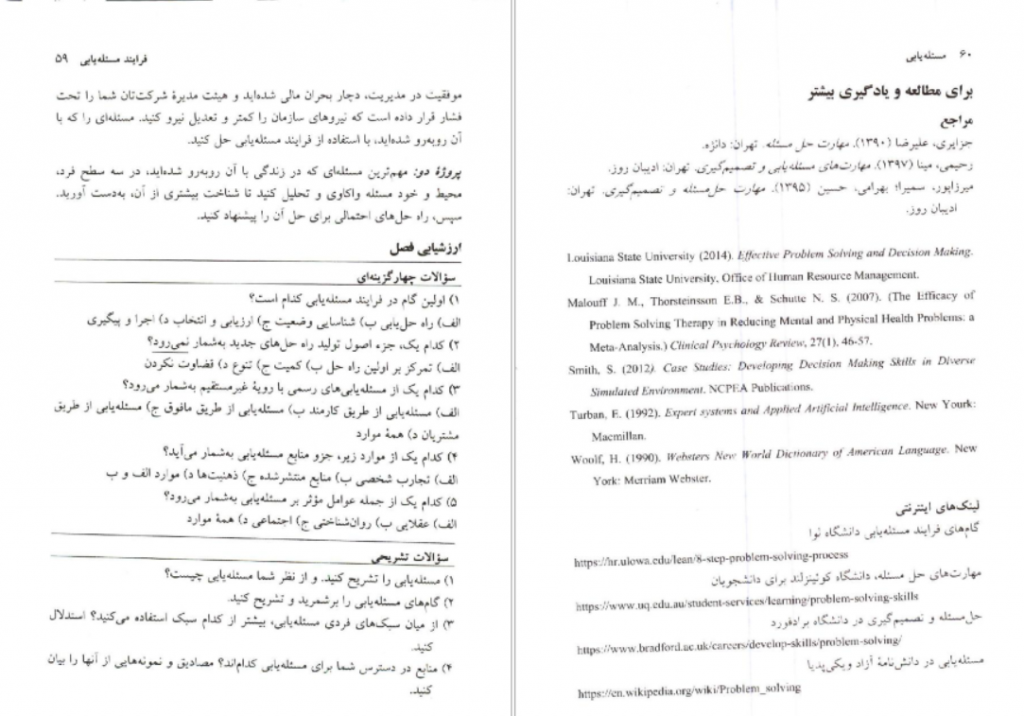 فرایند مسئله‌یابی ۵۹
موفقیت در مدیریت، دچار بحران مالی شده‌اید و هیئت مدیرهٔ شرکت‌تان شما را تحت
فشار قرار داده است که نیروهای سازمان را کمتر و تعدیل نیرو کنید. مسئله‌ای را که با
آن روبه‌رو شده‌اید، با استفاده از فرایند مسئله‌یابی حل کنید.
پروژهٔ دو: مهم‌ترین مسئله‌ای که در زندگی با آن روبه‌رو شده‌اید، در سه سطح فرد،
محیط و خود مسئله واکاوی و تحلیل کنید تا شناخت بیشتری از آن، به‌دست آورید.
سپس، راه حل‌های احتمالی برای حل آن را پیشنهاد کنید.
ارزشیابی فصل
سؤالات چهارگزینه‌ای
۱) اولین گام در فرایند مسئله‌یابی کدام است؟
الف) راه حل‌یابی ب) شناسایی وضعیت ج) ارزیابی و انتخاب د) اجرا و پیگیری
۲) کدام یک، جزء اصول تولید راه حل‌های جدید به‌شمار نمی‌رود؟
الف) تمرکز بر اولین راه حل ب) کمیت ج) تنوع د) قضاوت نکردن
۳) کدام یک از مسئله‌یابی‌های رسمی با رویهٔ غیرمستقیم به‌شمار می‌رود؟
الف) مسئله‌یابی از طریق کارمند ب) مسئله‌یابی از طریق مافوق ج) مسئله‌یابی از طریق
مشتریان د) همهٔ موارد
۴) کدام یک از موارد زیر، جزو منابع مسئله‌یابی به‌شمار می‌آید؟
الف) تجارب شخصی ب) منابع منتشرشده ج) ذهنیت‌ها د) موارد الف و ب
۵) کدام یک از جمله عوامل مؤثر بر مسئله‌یابی به‌شمار می‌رود؟
الف) عقلایی ب) روان‌شناختی ج) اجتماعی د) همهٔ موارد
سؤالات تشریحی
۱) مسئله‌یابی را تشریح کنید. و از نظر شما مسئله‌یابی چیست؟
۲) گام‌های مسئله‌یابی را برشمرید و تشریح کنید.
۳) از میان سبک‌های فردی مسئله‌یابی، بیشتر از کدام سبک استفاده می‌کنید؟ استدلال
کنید.
۴) منابع در دسترس شما برای مسئله‌یابی کدام‌اند؟ مصادیق و نمونه‌هایی از آنها را بیان
کنید.
۶۰ مسئله‌یابی
برای مطالعه و یادگیری بیشتر
مراجع
جزایری، علیرضا (۱۳۹۰). مهارت حل مسئله. تهران: دانژه.
رحیمی، مینا (۱۳۹۷). مهارت‌های مسئله‌یابی و تصمیم‌گیری. تهران: ادیبان روز.
میرزاپور، سمیرا؛ بهرامی، حسین (۱۳۹۵). مهارت حل‌مسئله و تصمیم‌گیری. تهران:
ادیبان روز.
Louisiana State University (2014). Effective Problem Solving and Decision Making.
Louisiana State University, Office of Human Resource Management.
Malouff J. M., Thorsteinsson E.B., & Schutte N. S. (2007). (The Efficacy of
Problem Solving Therapy in Reducing Mental and Physical Health Problems: a
Meta-Analysis.) Clinical Psychology Review, 27(1), 46-57.
Smith, S. (2012). Case Studies: Developing Decision Making Skills in Diverse
Simulated Environment. NCPEA Publications.
Turban, E. (1992). Expert systems and Applied Artificial Intelligence. New Yourk:
Macmillan.
Woolf, H. (1990). Websters New World Dictionary of American Language. New
York: Merriam Webster.
لینک‌های اینترنتی
گام‌های فرایند مسئله‌یابی دانشگاه لوا
https://hr.uiowa.edu/lean/8-step-problem-solving-process
مهارت‌های حل مسئله، دانشگاه کوئینزلند برای دانشجویان
https://www.uq.edu.au/student-services/learning/problem-solving-skills
حل‌مسئله و تصمیم‌گیری در دانشگاه برادفورد
https://www.bradford.ac.uk/careers/develop-skills/problem-solving/
مسئله‌یابی در دانش‌نامهٔ آزاد ویکی‌پدیا
https://en.wikipedia.org/wiki/Problem_solving